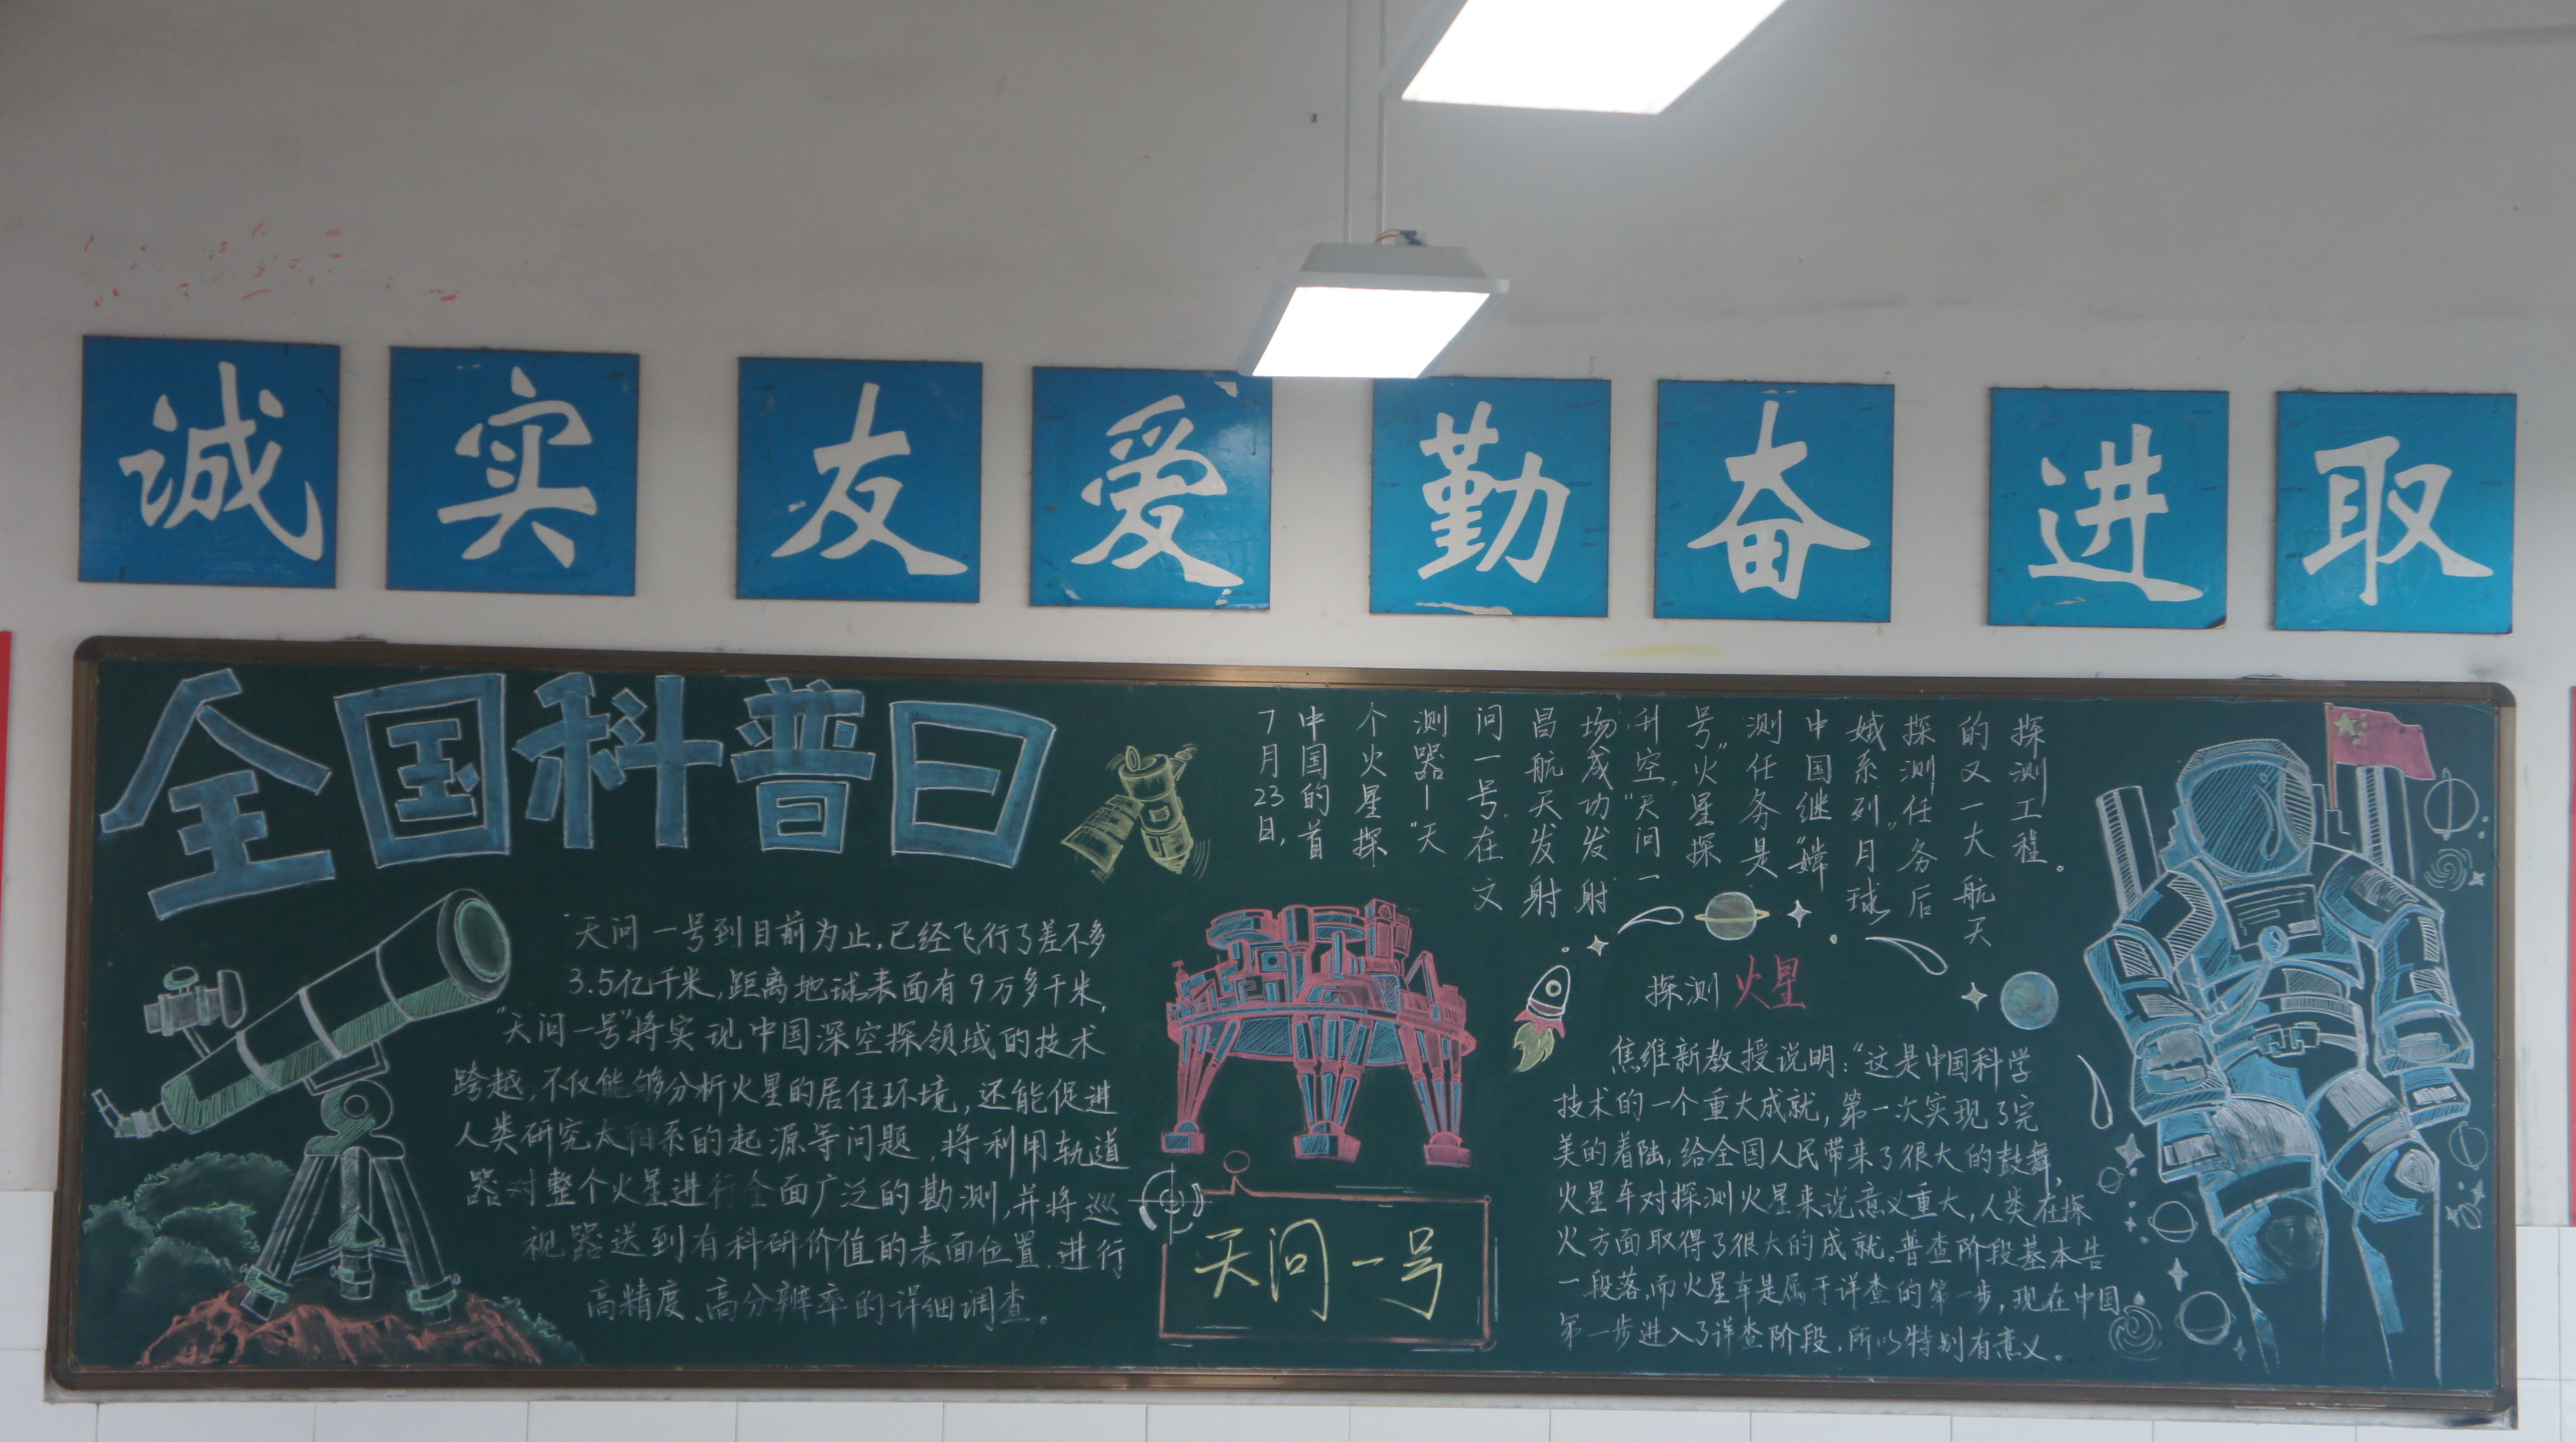 诚实 友爱 勤奋 进取
全国科普日
"天问一号到目前为止,已经飞行了差不多
3.5亿千米,距离地球表面有9万多千米,
"天问一号"将实现中国深空探领域的技术
跨越,不仅能够分析火星的居住环境,还能促进
人类研究太阳系的起源等问题,将利用轨道
器对整个火星进行全面广泛的勘测,并将巡
视器送到有科研价值的表面位置,进行
高精度、高分辨率的详细调查。
7月23日,
中国的首
个火星探
测器—"天
问一号"在文
昌航天发射
场成功发射
升空。"天问一
号"火星探
测任务是
中国继"嫦
娥系列"月球
探测任务后
的又一大航天
探测工程。
天问一号
探测火星
焦维新教授说明:"这是中国科学
技术的一个重大成就,第一次实现了完
美的着陆,给全国人民带来了很大的鼓舞,
火星车对探测火星来说意义重大,人类在探
火方面取得了很大的成就。普查阶段基本告
一段落,而火星车是属于详查的第一步,现在中国
第一步进入了详查阶段,所以特别有意义。